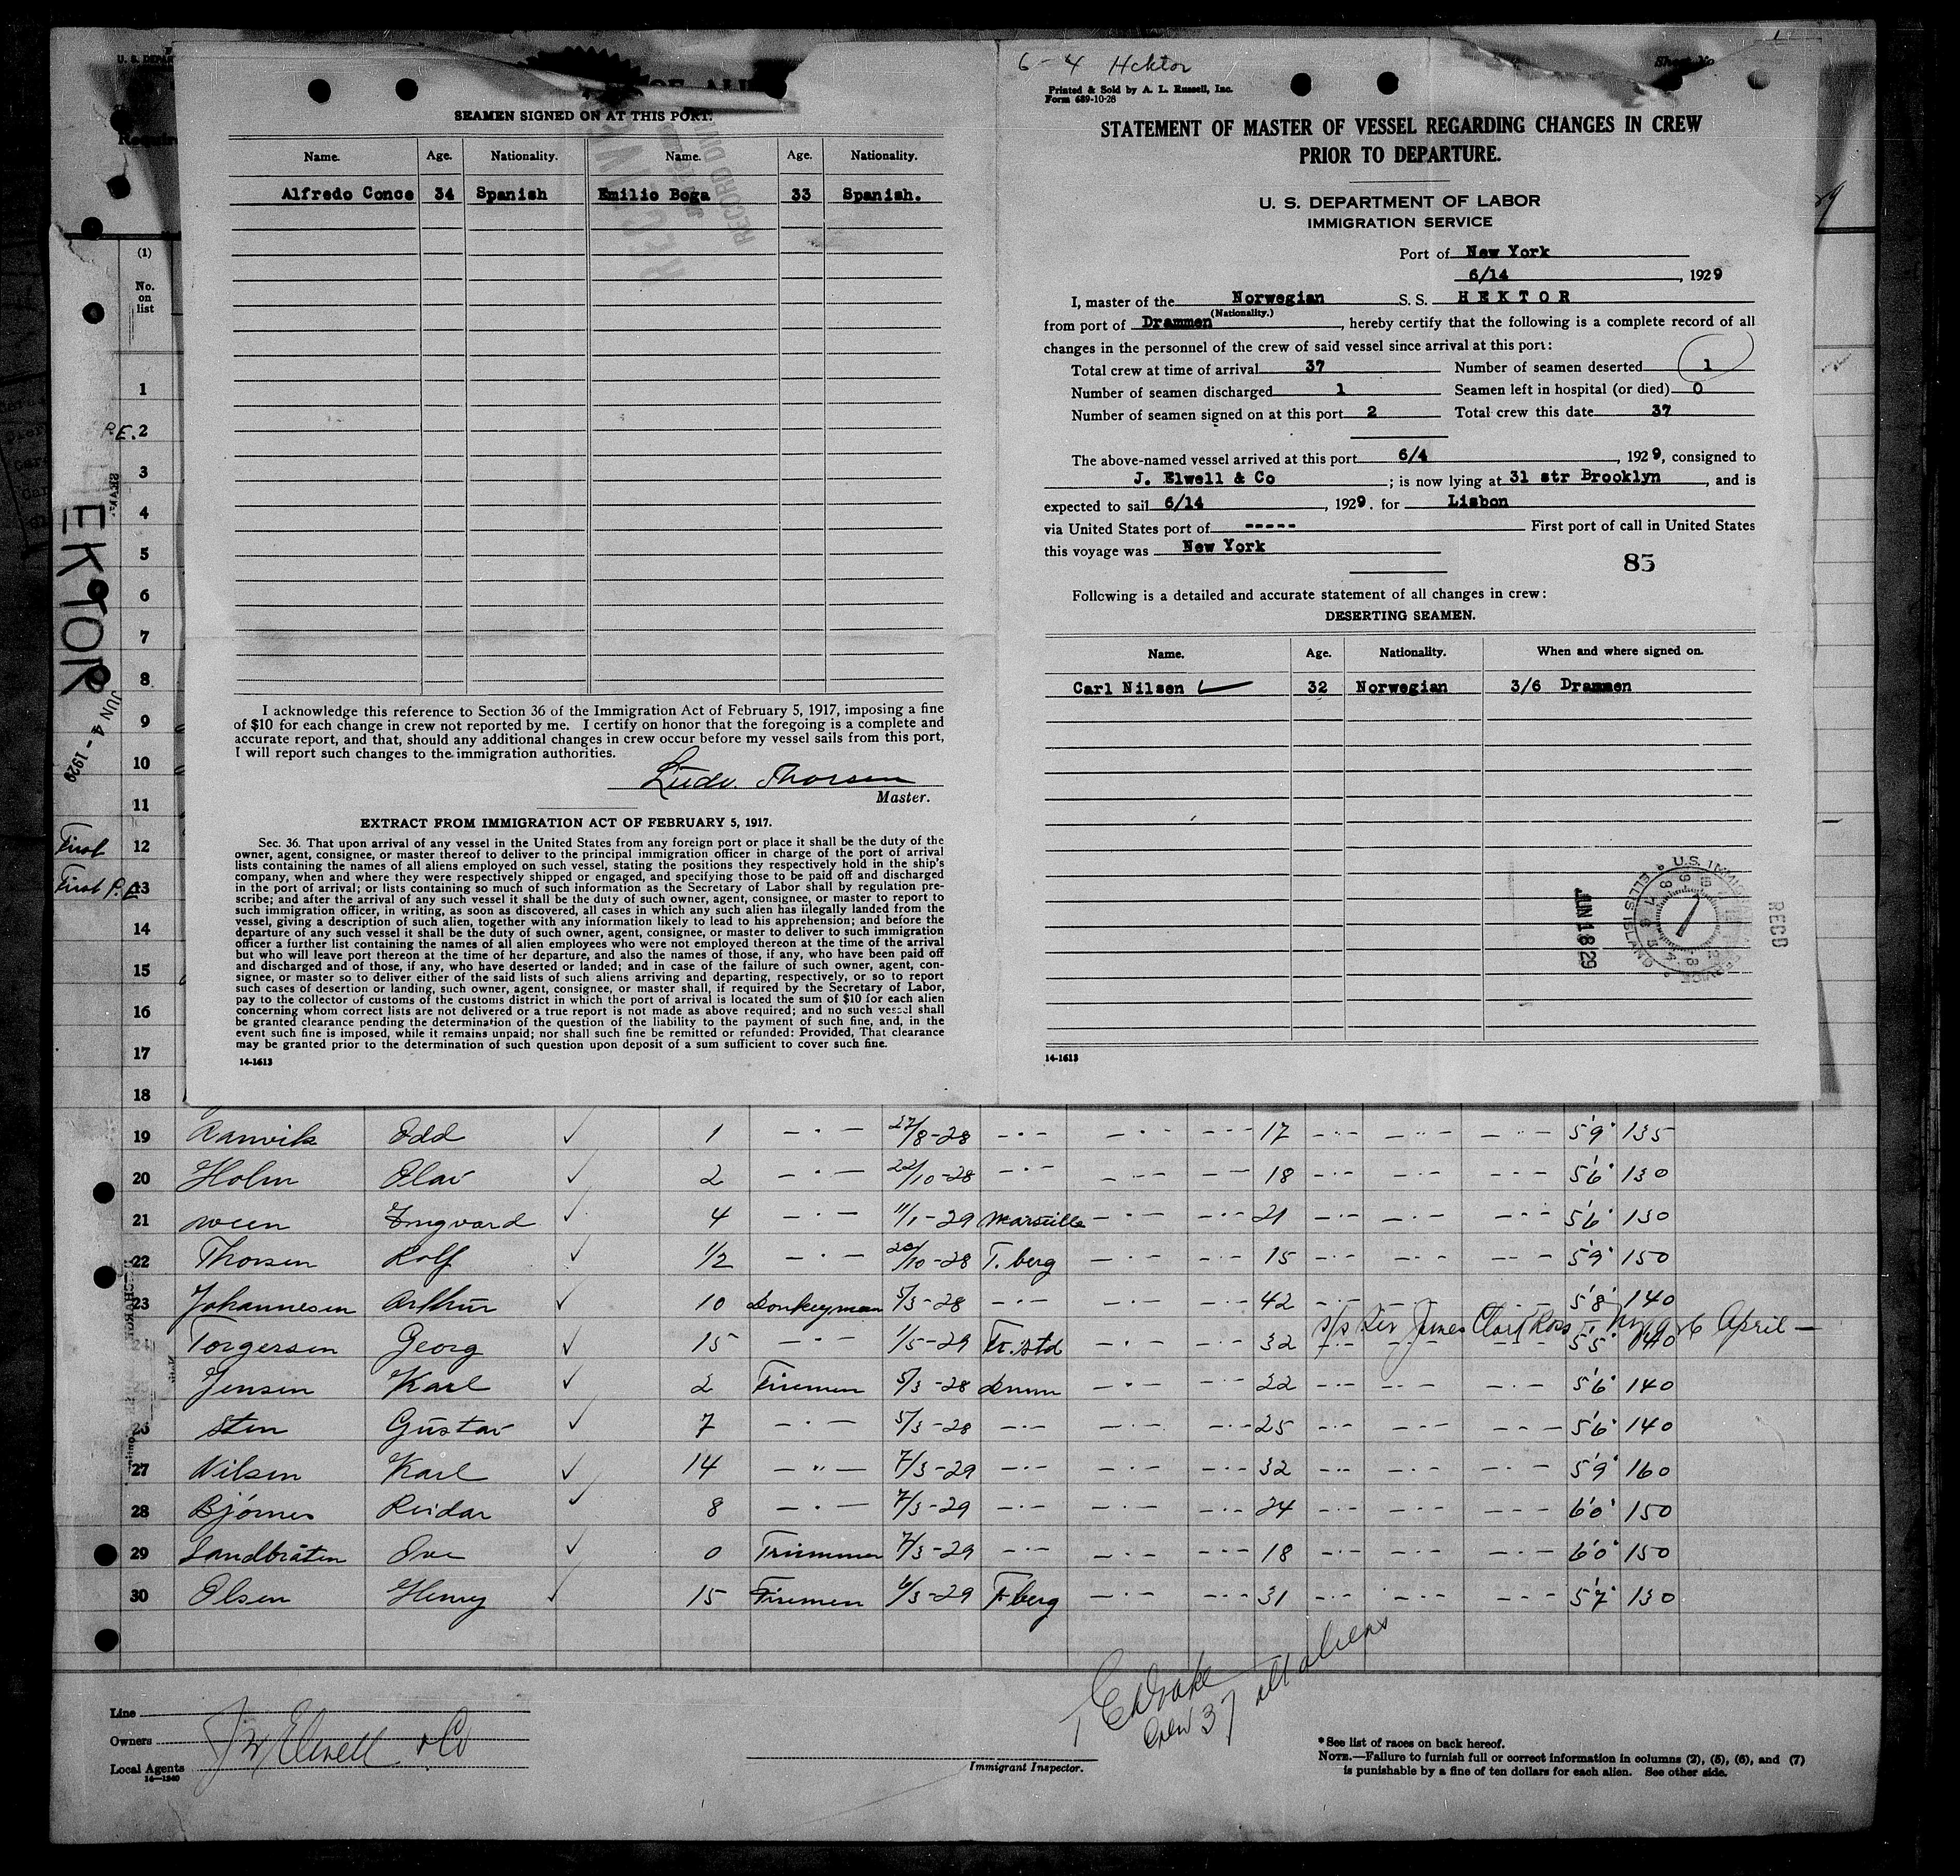 SEAMEN SIGNED ON AT THIS PORT.
Name. Age. Nationality. Name. Age. Nationality.
Alfredo Conce 34 Spanish Emilio Boga 33 Spanish.
I acknowledge this reference to Section 36 of the Immigration Act of February 5, 1917, imposing a fine
of $10 for each change in crew not reported by me. I certify on honor that the foregoing is a complete and
accurate report, and that, should any additional changes in crew occur before my vessel sails from this port,
I will report such changes to the immigration authorities.
Ludv. Thorsen
Master.
EXTRACT FROM IMMIGRATION ACT OF FEBRUARY 5, 1917.
Sec. 36. That upon arrival of any vessel in the United States from any foreign port or place it shall be the duty of the
owner, agent, consignee, or master thereof to deliver to the principal immigration officer in charge of the port of arrival
lists containing the names of all aliens employed on such vessel, stating the positions they respectively hold in the ship's
company, when and where they were respectively shipped or engaged, and specifying those to be paid off and discharged
in the port of arrival; or lists containing so much of such information as the Secretary of Labor shall by regulation pre-
scribe; and after the arrival of any such vessel it shall be the duty of such owner, agent, consignee, or master to report to
such immigration officer, in writing, as soon as discovered, all cases in which any such alien has illegally landed from the
vessel, giving a description of such alien, together with any information likely to lead to his apprehension; and before the
departure of any such vessel it shall be the duty of such owner, agent, consignee, or master to deliver to such immigration
officer a further list containing the names of all alien employees who were not employed thereon at the time of the arrival
but who will leave port thereon at the time of her departure, and also the names of those, if any, who have been paid off
and discharged and of those, if any, who have deserted or landed; and in case of the failure of such owner, agent, con-
signee, or master so to deliver either of the said lists of such aliens arriving and departing, respectively, or so to report
such cases of desertion or landing, such owner, agent, consignee, or master shall, if required by the Secretary of Labor,
pay to the collector of customs of the customs district in which the port of arrival is located the sum of $10 for each alien
concerning whom correct lists are not delivered or a true report is not made as above required; and no such vessel shall
be granted clearance pending the determination of the question of the liability to the payment of such fine, and, in the
event such fine is imposed, while it remains unpaid; nor shall such fine be remitted or refunded: Provided, That clearance
may be granted prior to the determination of such question upon deposit of a sum sufficient to cover such fine.
14-1613
6-4 Hektor
Printed & Sold by A. L. Russell, Inc.
Form 689-10-28
Sheet No
STATEMENT OF MASTER OF VESSEL REGARDING CHANGES IN CREW
PRIOR TO DEPARTURE.
U. S. DEPARTMENT OF LABOR
IMMIGRATION SERVICE
Port of New York
6/14, 1929
I, master of the Norwegian S. S. HEKTOR
(Nationality.)
from port of Drammen, hereby certify that the following is a complete record of all
changes in the personnel of the crew of said vessel since arrival at this port:
Total crew at time of arrival 37 Number of seamen deserted 1
Number of seamen discharged 1 Seamen left in hospital (or died) 0
Number of seamen signed on at this port 2 Total crew this date 37
The above-named vessel arrived at this port 6/4, 1929, consigned to
J. Elwell & Co; is now lying at 31 str Brooklyn, and is
expected to sail 6/14, 1929. for Lisbon
via United States port of ----- First port of call in United States
this voyage was New York
85
Following is a detailed and accurate statement of all changes in crew:
DESERTING SEAMEN.
Name. Age. Nationality. When and where signed on.
Carl Nilsen 32 Norwegian 3/6 Drammen
JUN 18 29
RECD
14-1613
(1)
No.
on
list
1
RE. 2
3
4
5
6
7
8
9
10
11
First 12
First P.E. 13
14
15
16
17
18
EKTOR
JUN 4 - 1929
19 Ranvik Odd 1 27/8-28 17 5'9" 135
20 Holm Olav 2 22/10-28 18 5'6" 130
21 Ween Ingvard 4 11/1-29 Marseille 21 5'6" 130
22 Thorsen Rolf 1/2 20/10-28 T.berg 15 5'9" 150
23 Johannesen Arthur 10 Donkeyman 5/3-28 42 5'8" 140
s/s Sir James Clark Ross April
24 Torgersen Georg 15 1/5-29 Fr.std 32 5'5" 140
Jensen Karl 2 Firemen 5/3-28 Drmn 22 5'6" 140
26 Sten Gustav 7 5/3-28 25 5'6" 140
27 Nilsen Karl 14 7/3-29 32 5'9" 160
28 Bjørnes Reidar 8 7/3-29 24 6'0" 150
29 Sandbråten Ove 0 Trimmer 7/3-29 18 6'0" 150
30 Olsen Henry 15 Firemen 6/3-29 T.berg 31 5'7" 130
Crew 37 all aliens
Line
Owners
Local Agents J W Elwell & Co
14-1240
Immigrant Inspector.
* See list of races on back hereof.
NOTE.—Failure to furnish full or correct information in columns (2), (5), (6), and (7)
is punishable by a fine of ten dollars for each alien. See other side.